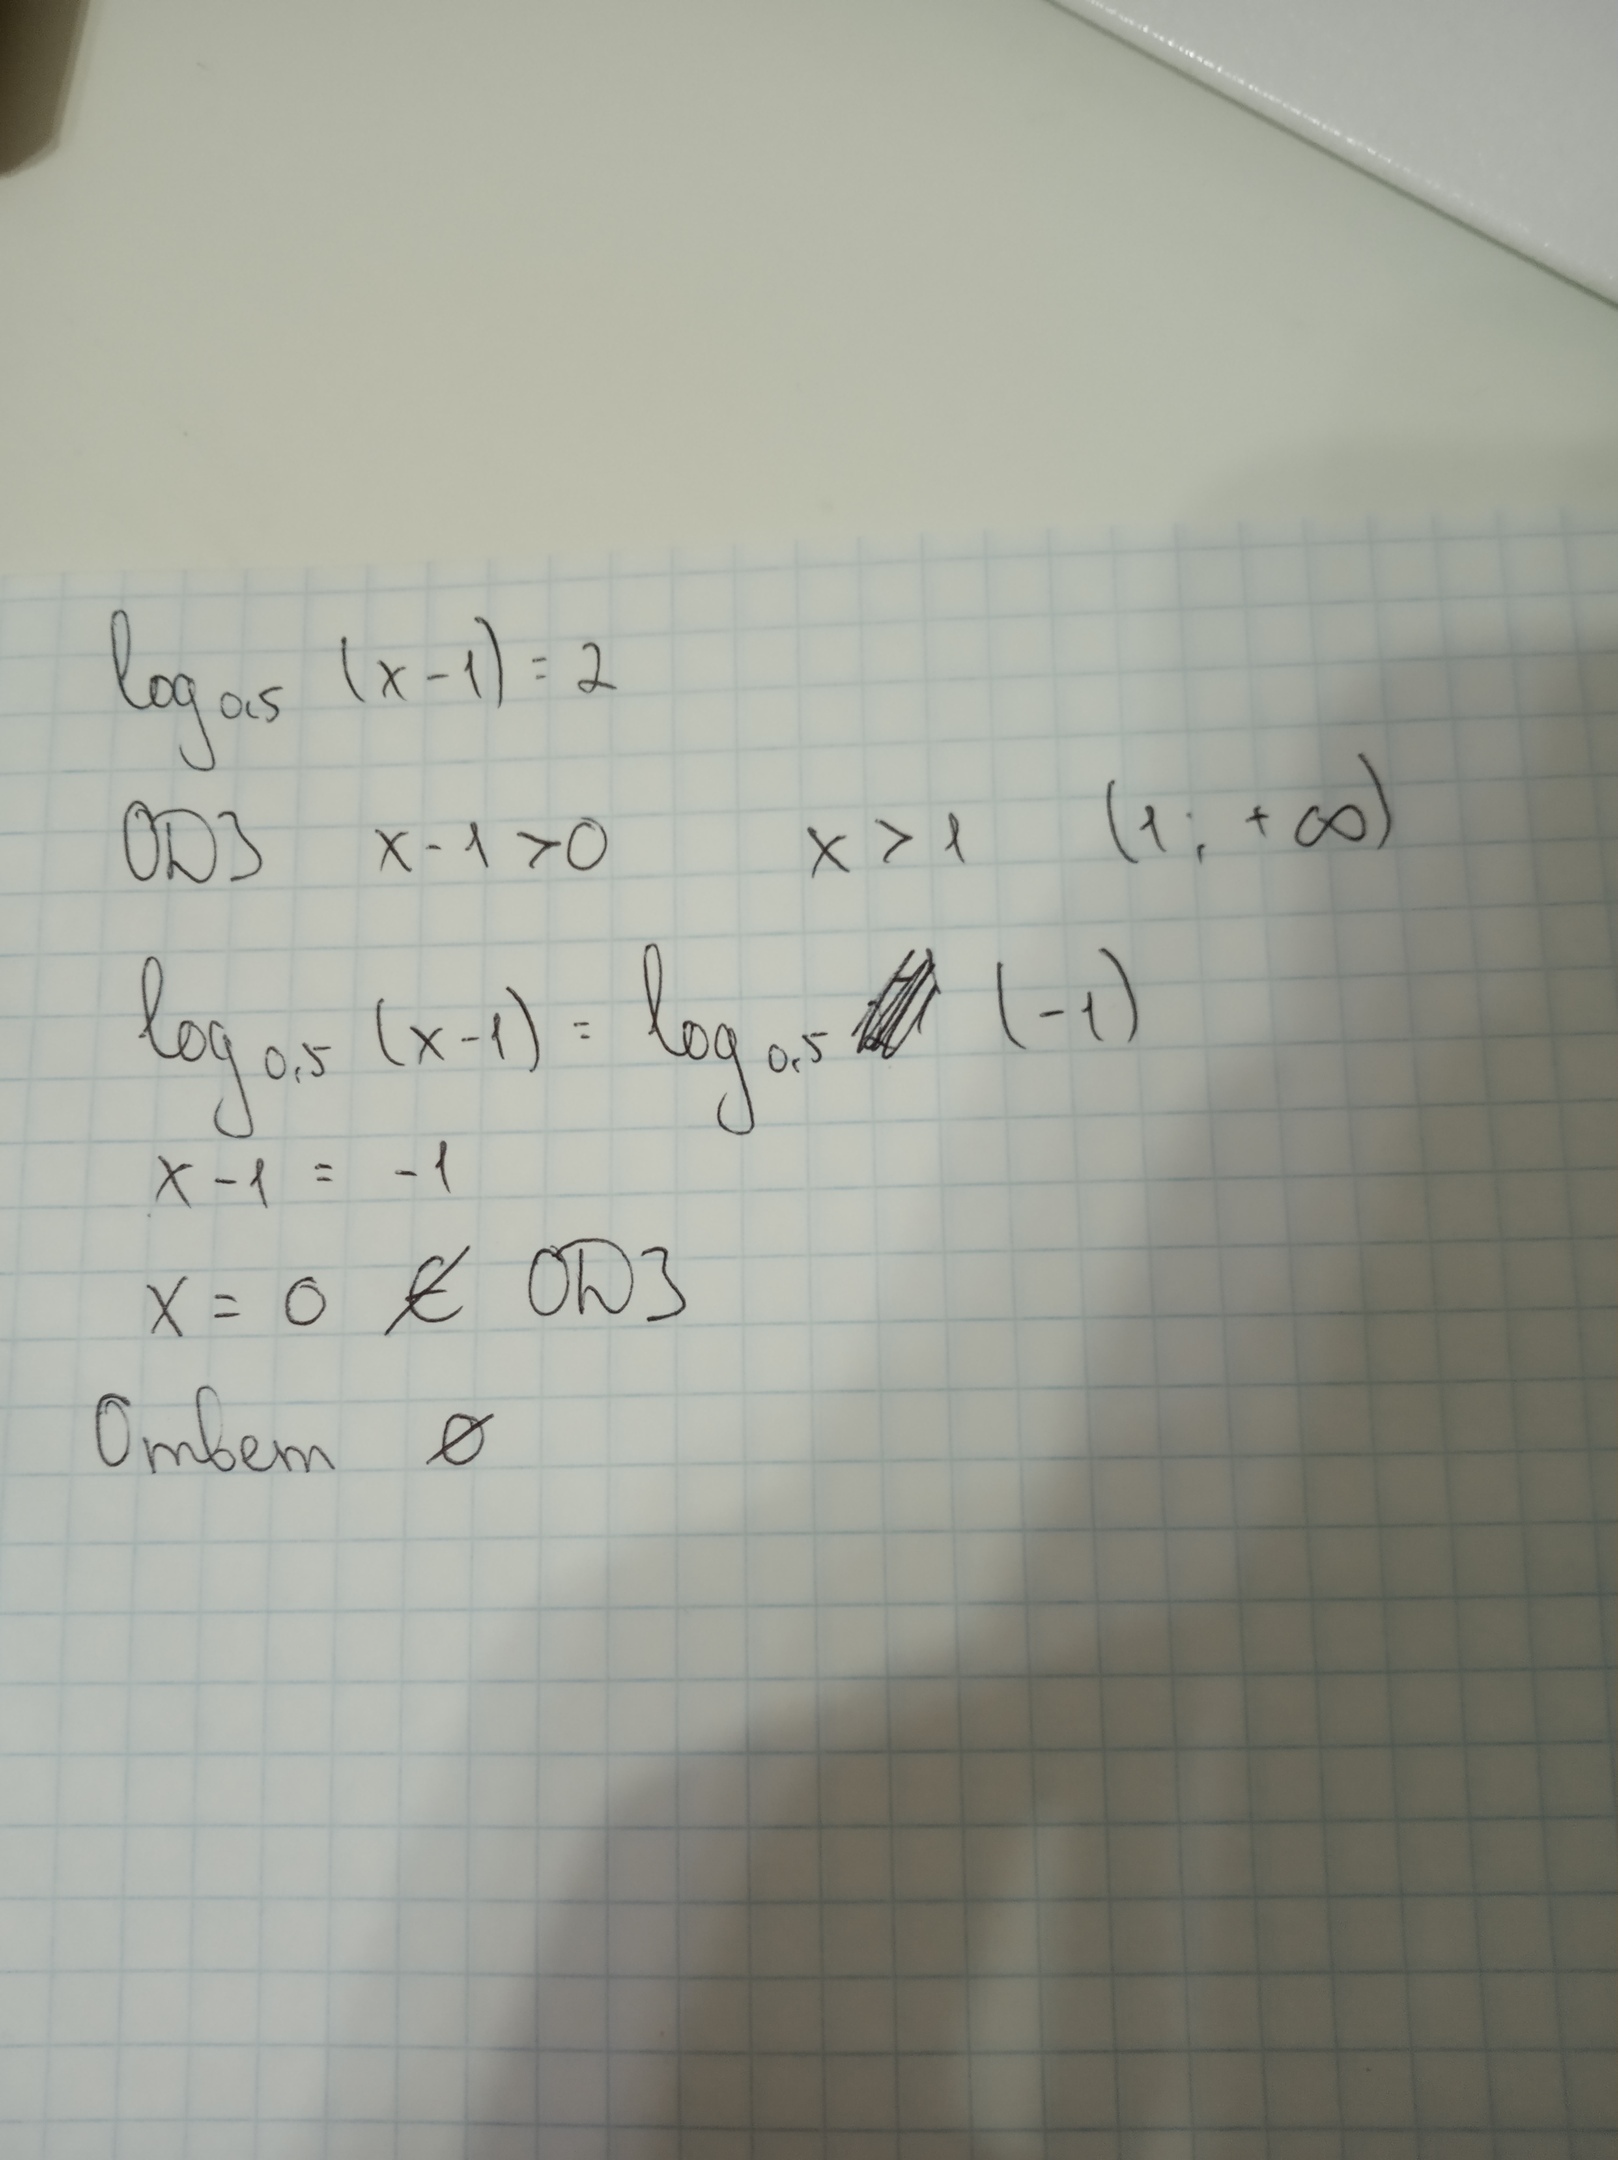 log₀,₅ (x-1) = 2
ОДЗ x-1>0 x>1 (1; +∞)
log₀,₅ (x-1) = log₀,₅ (-1)
x-1 = -1
x = 0 ∉ ОДЗ
Ответ ∅